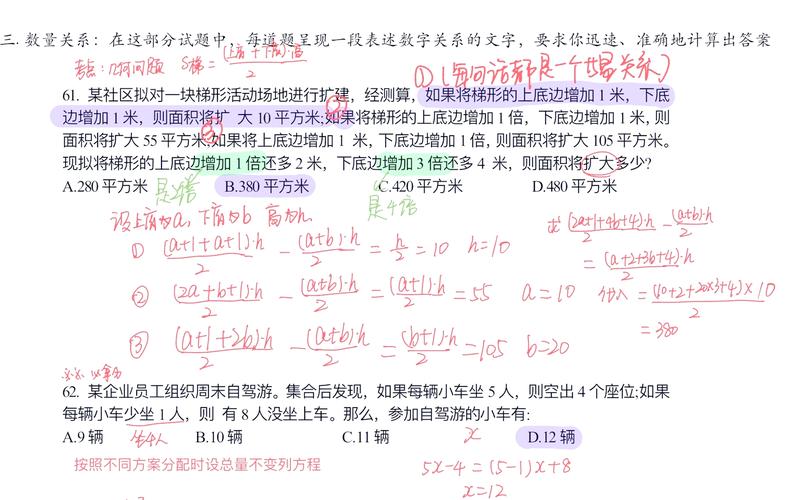 三. 数量关系：在这部分试题中，每道题呈现一段表述数字关系的文字，要求你迅速、准确地计算出答案
考点：几何问题 S梯=(上底+下底)·高/2
①(每句话都是一个等量关系)
61. 某社区拟对一块梯形活动场地进行扩建，经测算，如果将梯形的上底边增加 1 米，下底
边增加 1 米，则面积将扩 大 10 平方米;如果将梯形的上底边增加 1 倍，下底边增加 1 米，则
面积将扩大 55 平方米;如果将上底边增加 1 米，下底边增加 1 倍，则面积将扩大 105 平方米。
现拟将梯形的上底边增加 1 倍还多 2 米，下底边增加 3 倍还多 4 米，则面积将扩大多少?
A.280 平方米 是2倍 B.380 平方米 C.420 平方米 D.480 平方米
是4倍
设上底为a, 下底为b 高为h.
① (a+1+a+1)·h/2 - (a+b)·h/2 = h/2 = 10 h=10
② (2a+b+1)·h/2 - (a+b)·h/2 = (a+1)·h/2 = 55 a=10
③ (a+1+2b)·h/2 - (a+b)·h/2 = (b+1)·h/2 =105 b=20
求 (2a+1+4b+4)·h/2 - (a+b)·h/2
= (a+2+3b+4)·h/2
代入 = (10+2+20×3+4)×10/2
= 380
62. 某企业员工组织周末自驾游。集合后发现，如果每辆小车坐 5 人，则空出 4 个座位;如果
每辆小车少坐 1 人，则 有 8 人没坐上车。那么，参加自驾游的小车有:
A.9 辆 坐4人 B.10 辆 C.11 辆 x D.12 辆
按照不同方案分配时设总量不变列方程
5x-4=(5-1)x+8
x=12